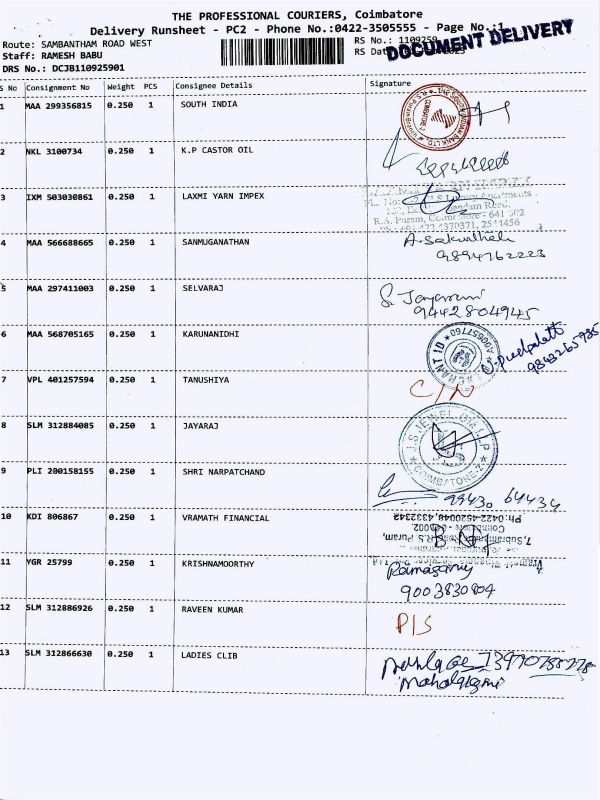 THE PROFESSIONAL COURIERS, Coimbatore
Delivery Runsheet - PC2 - Phone No.:0422-3505555 - Page No.:1
Route: SAMBANTHAM ROAD WEST
Staff: RAMESH BABU
DRS No.: DCJB110925901
RS No.:
RS
DOCUMENT DELIVERY
S No Consignment No Weight PCS Consignee Details Signature
1 MAA 299356815 0.250 1 SOUTH INDIA
2 NKL 3100734 0.250 1 K.P CASTOR OIL
3 IXM 503030861 0.250 1 LAXMI YARN IMPEX
R.S. Puram, Coimbatore - 641 002
4 MAA 566688665 0.250 1 SANMUGANATHAN
A. Sakunthala
9894762223
5 MAA 297411003 0.250 1 SELVARAJ
S. Jayarani
9442804945
6 MAA 568705165 0.250 1 KARUNANIDHI
9843265935
7 VPL 401257594 0.250 1 TANUSHIYA
C/N
8 SLM 312884085 0.250 1 JAYARAJ
J.S. JEWEL
COIMBATORE-2
9 PLI 200158155 0.250 1 SHRI NARPATCHAND
99430 64434
10 KDI 806867 0.250 1 VRAMATH FINANCIAL
Ph:0422-4520048, 4332342
11 YGR 25799 0.250 1 KRISHNAMOORTHY
Ramasamy
9003830804
12 SLM 312886926 0.250 1 RAVEEN KUMAR
P/S
13 SLM 312866630 0.250 1 LADIES CLIB